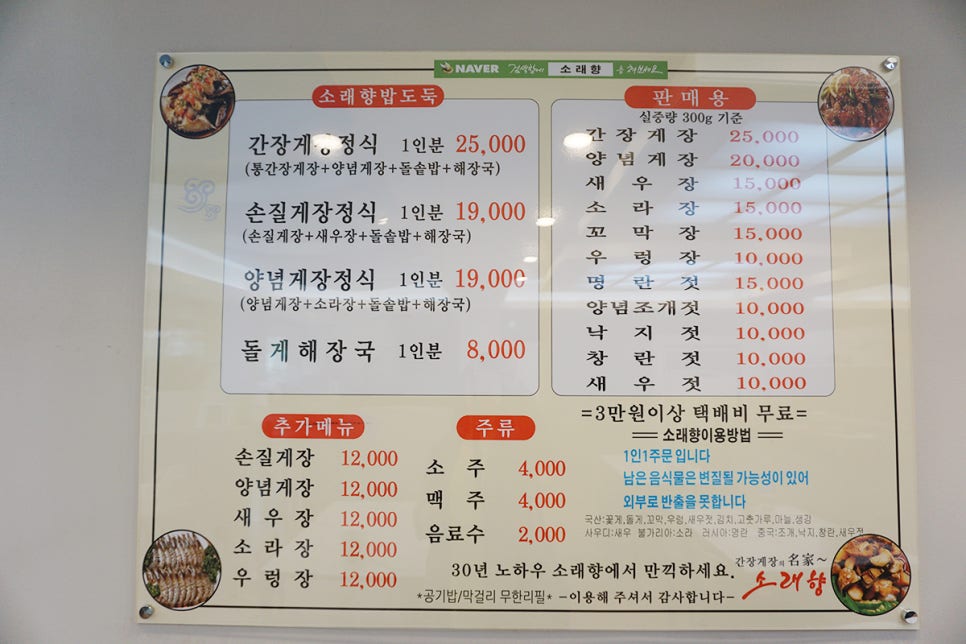 NAVER 검색창에 소래향 을 쳐보세요
소래향밥도둑
간장게장정식 1인분 25,000
(통간장게장+양념게장+돌솥밥+해장국)
손질게장정식 1인분 19,000
(손질게장+새우장+돌솥밥+해장국)
양념게장정식 1인분 19,000
(양념게장+소라장+돌솥밥+해장국)
돌게해장국 1인분 8,000
판매용
실중량 300g 기준
간장게장 25,000
양념게장 20,000
새우장 15,000
소라장 15,000
꼬막장 15,000
우렁장 10,000
명란젓 15,000
양념조개젓 10,000
낙지젓 10,000
창란젓 10,000
새우젓 10,000
=3만원이상 택배비 무료=
추가메뉴
손질게장 12,000
양념게장 12,000
새우장 12,000
소라장 12,000
우렁장 12,000
주류
소주 4,000
맥주 4,000
음료수 2,000
소래향이용방법
1인1주문입니다
남은 음식물은 변질될 가능성이 있어
외부로 반출을 못합니다
국산:꽃게,돌게,꼬막,우렁,새우젓,김치,고춧가루,마늘,생강
사우디:새우 불가리아:소라 러시아:명란 중국:조개,낙지,창란,새우젓
30년 노하우 소래향에서 만끽하세요.
*공기밥/막걸리 무한리필* -이용해 주셔서 감사합니다-
간장게장의 名家~
소래향